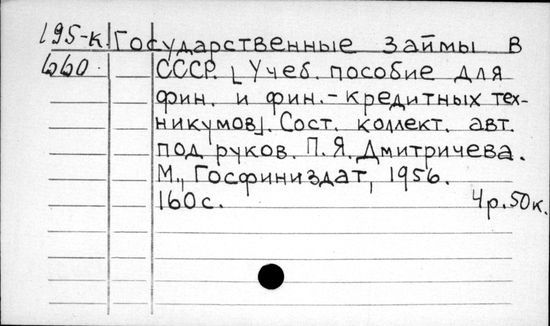 195-к. Государственные займы в
660 СССР. [Учеб. пособие для
фин. и фин.-кредитных тех-
никумов]. Сост. коллект. авт.
под руков. П.Я. Дмитричева.
М., Госфиниздат, 1956.
160с. 4р.50к.